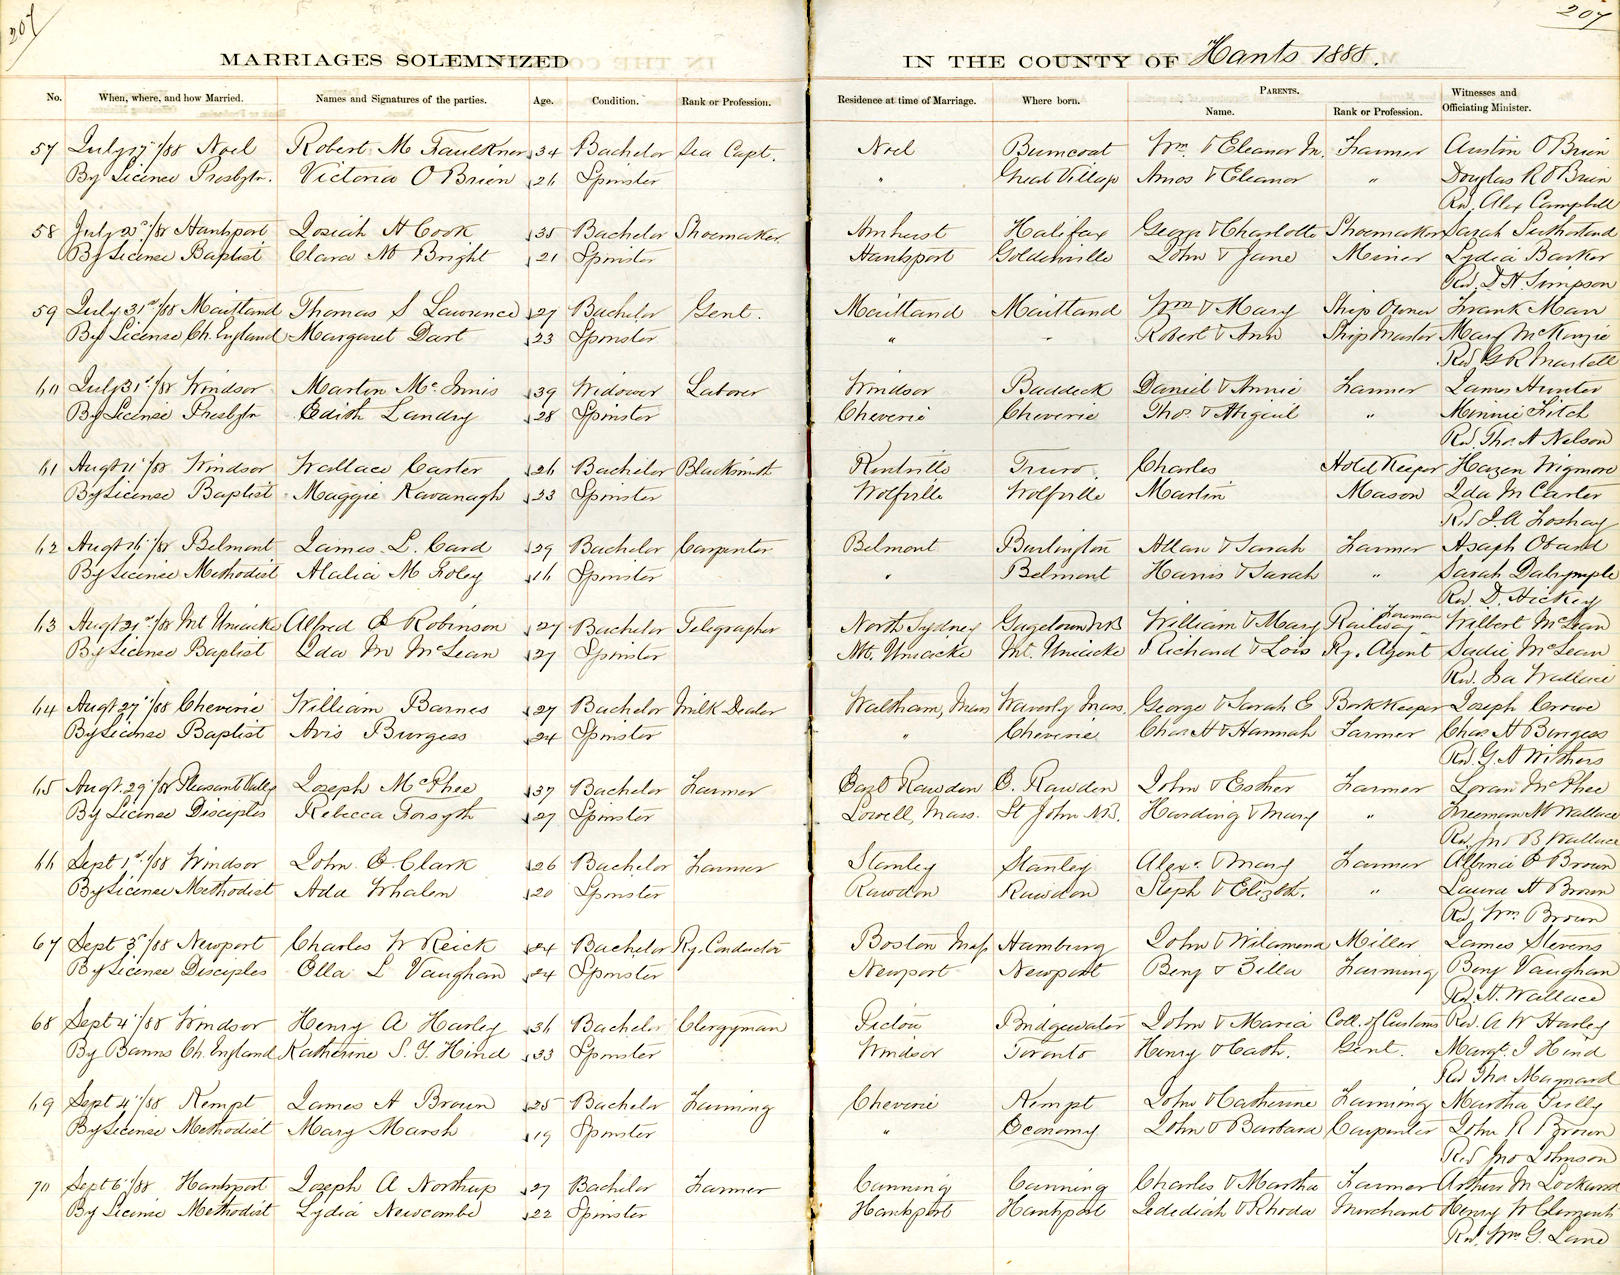 207
207
MARRIAGES SOLEMNIZED IN THE COUNTY OF Hants 1888.
No. When, where, and how Married. Names and Signatures of the parties. Age. Condition. Rank or Profession. Residence at time of Marriage. Where born. PARENTS. Name. Rank or Profession. Witnesses and Officiating Minister.
57 July 17"/88 Noel Robert M Faulkner 34 Bachelor Sea Capt. Noel Burncoat Wm & Eleanor M. Farmer Austin O Brien
By License Presbytn. Victoria O Brien 26 Spinster " Great Village Amos & Eleanor " Douglas R O Brien
Rev. Alex Campbell
58 July /88 Hantsport Josiah H Cook 35 Bachelor Shoemaker Amherst Halifax George & Charlotte Shoemaker Sarah Sutherland
By License Baptist Clara M Bright 21 Spinster Hantsport Goldenville John & Jane Miner Lydia Barker
Rev. D H Simpson
59 July 31st/88 Maitland Thomas S Lawrence 27 Bachelor Gent. Maitland Maitland Wm & Mary Ship Owner Frank Man
By License Ch. England Margaret Dart 23 Spinster " " Robert & Ann Ship Master Mary McKenzie
Rev G R Martell
60 July 31st/88 Windsor Martin McInnis 39 Widower Laborer Windsor Baddeck Daniel & Annie Farmer James Hunter
By License Presbytn Edith Landry 28 Spinster Cheverie Cheverie Thos & Abigail " Minnie Fitch
Rev. Thos A Nelson
61 Augt 11"/88 Windsor Wallace Carter 26 Bachelor Blacksmith Kentville Truro Charles Hotel Keeper Hazen Wigmore
By License Baptist Maggie Kavanagh 23 Spinster Wolfville Wolfville Martin Mason Ida M Carter
Rev J. A Foshay
62 Augt 16"/88 Belmont James L. Card 29 Bachelor Carpenter Belmont Burlington Allan & Sarah Farmer Asaph
By License Methodist Alalia M Foley 16 Spinster " Belmont Harris & Sarah " Sarah Dalrymple
Rev. D. Hickey
63 Augt 21st/88 Mt Uniacke Alfred E Robinson 27 Bachelor Telegrapher North Sydney Gagetown NB William & Mary Railway Foreman Wilbert McLean
By License Baptist Ida M McLean 27 Spinster Mt. Uniacke Mt. Uniacke Richard & Lois Ry. Agent Sadie McLean
Rev. Isa Wallace
64 Augt 27"/88 Cheverie William Barnes 27 Bachelor Milk Dealer Waltham, Mass Waverly Mass. George & Sarah E Book Keeper Joseph Crowe
By License Baptist Avis Burgess 24 Spinster " Cheverie Chas H & Hannah Farmer Chas H Burgess
Rev. G. A Withers
65 Augt. 29"/88 Pleasant Vally Joseph McPhee 37 Bachelor Farmer East Rawdon E. Rawdon John & Esther Farmer Loran McPhee
By License Disciples Rebecca Forsyth 27 Spinster Lowell, Mass. St John N.B. Harding & Mary " Freeman W Wallace
Rev. Jno B Wallace
66 Sept 1st/88 Windsor John E Clark 26 Bachelor Farmer Stanley Stanley Alexr & Mary Farmer Albina E Brown
By License Methodist Ada Whalen 20 Spinster Rawdon Rawdon Steph & Elizbth. " Laura H Brown
Rev. Wm Brown
67 Sept 3"/88 Newport Charles W Reick 24 Bachelor Ry. Conductor Boston Mass Hamburg John & Wilamena Miller James Stevens
By License Disciples Ella L Vaughan 24 Spinster Newport Newport Benj & Zilla Farming Benj Vaughan
Rev. H. Wallace
68 Sept 4"/88 Windsor Henry A Harley 36 Bachelor Clergyman Pictou Bridgewater John & Maria Coll. of Customs Rev. A W Harley
By Banns Ch. England Katherine S. Y. Hind 33 Spinster Windsor Toronto Henry & Cath. Gent. Margt. I Hind
Rev Thos Maynard
69 Sept 4"/88 Kempt James H Brown 25 Bachelor Farming Cheverie Kempt John & Catherine Farming Martha Tully
By License Methodist Mary Marsh 19 Spinster " Economy John & Barbara Carpenter John R Brown
Rev Jno Johnson
70 Sept 6"/88 Hantsport Joseph A Northup 27 Bachelor Farmer Canning Canning Charles & Martha Farmer Arthur M Lockwood
By License Methodist Lydia Newcombe 22 Spinster Hantsport Hantsport Jedediah & Rhoda Merchant Henry W Clements
Rev. Wm G. Lane